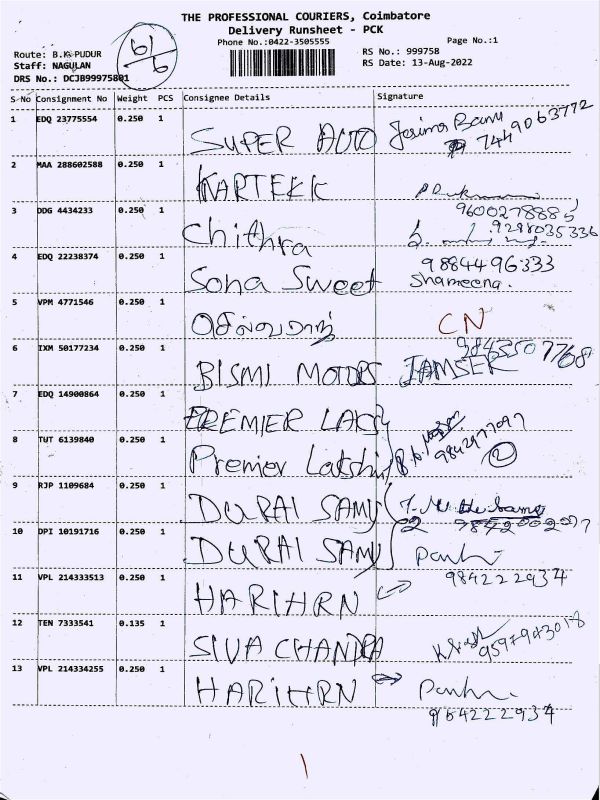 THE PROFESSIONAL COURIERS, Coimbatore
Delivery Runsheet - PCK
Phone No.:0422-3505555 Page No.:1
Route: B.K.PUDUR RS No.: 999758
Staff: NAGULAN RS Date: 13-Aug-2022
DRS No.: DCJB99975801
61/6
S No Consignment No Weight PCS Consignee Details Signature
1 EDQ 23775554 0.250 1 SUPER AUTO Jesima Banu
7449063772
2 MAA 288602588 0.250 1 KARTEKK
3 DDG 4434233 0.250 1 Chithra
9600278885
9288035336
4 EDQ 22238374 0.250 1 Sona Sweet 9884496333
Shameena.
5 VPM 4771546 0.250 1 செல்வராஜ் CN
6 IXM 50177234 0.250 1 BISMI MOTORS JAMSER
9843507768
7 EDQ 14900864 0.250 1 PREMIER LACS
8 TUT 6139840 0.250 1 Premier Lakshmi 9842977097
2
9 RJP 1109684 0.250 1 DURAI SAMY
10 DPI 10191716 0.250 1 DURAI SAMY
11 VPL 214333513 0.250 1 HARIHRN 984222934
12 TEN 7333541 0.135 1 SIVA CHANDRA 9597943018
13 VPL 214334255 0.250 1 HARIHRN
984222934
1